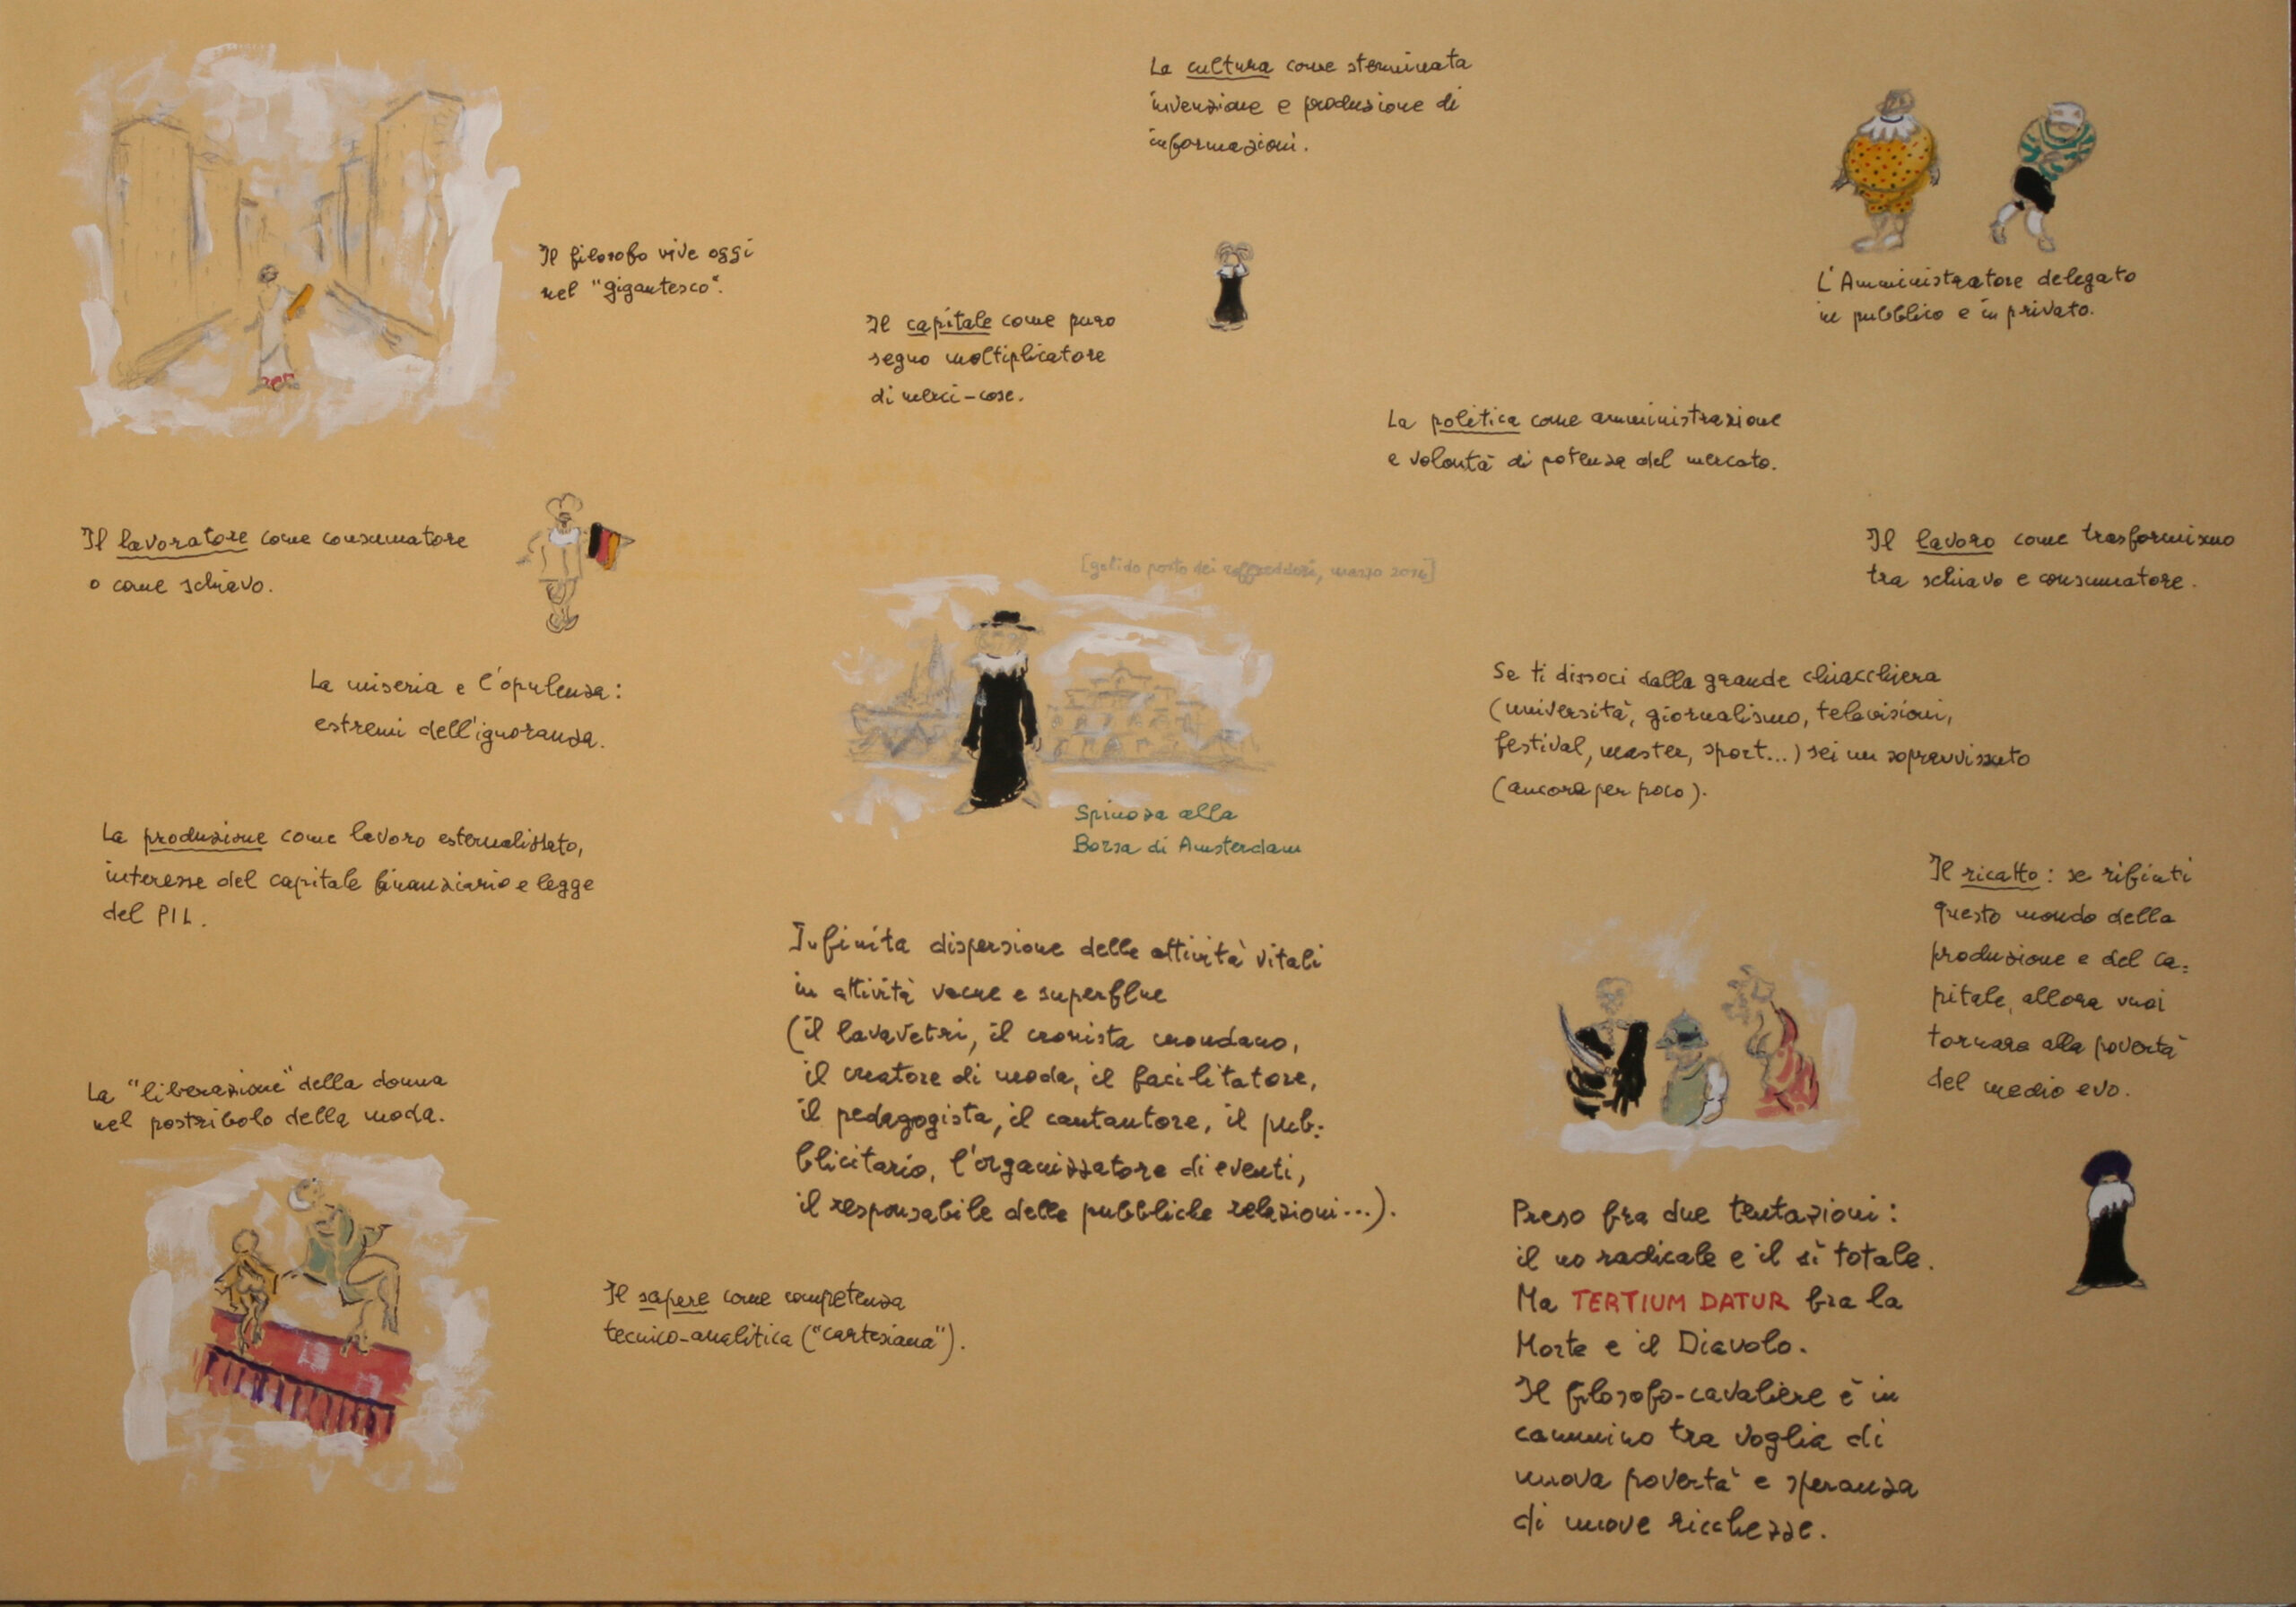 La cultura come sterminata
invenzione e produzione di
informazioni.
Il filosofo vive oggi
nel "gigantesco".
Il capitale come puro
segno moltiplicatore
di merci-cose.
L'Amministratore delegato
in pubblico e in privato.
La politica come amministrazione
e volontà di potenza del mercato.
Il lavoratore come consumatore
o come schiavo.
Il lavoro come trasformismo
tra schiavo e consumatore.
[gelido porto dei raffreddori, marzo 2014]
La miseria e l'opulenza:
estremi dell'ignoranza.
Se ti dissoci dalla grande chiacchiera
(università, giornalismo, televisioni,
festival, master, sport...) sei un sopravvissuto
(ancora per poco).
Spinoza alla
Borsa di Amsterdam
La produzione come lavoro esternalizzato,
interesse del capitale finanziario e legge
del PIL.
Il ricatto: se rifiuti
questo mondo della
produzione e del ca=
pitale, allora vuoi
tornare alla povertà
del medio evo.
Infinita dispersione delle attività vitali
in attività vacue e superflue
(il lavavetri, il cronista mondano,
il creatore di moda, il facilitatore,
il pedagogista, il cantautore, il pub=
blicitario, l'organizzatore di eventi,
il responsabile delle pubbliche relazioni...).
La "liberazione" della donna
nel postribolo della moda.
Il sapere come competenza
tecnico-analitica ("cartesiana").
Preso fra due tentazioni:
il no radicale e il sì totale.
Ma TERTIUM DATUR fra la
Morte e il Diavolo.
Il filosofo-cavaliere è in
cammino tra voglia di
nuova povertà e speranza
di nuove ricchezze.